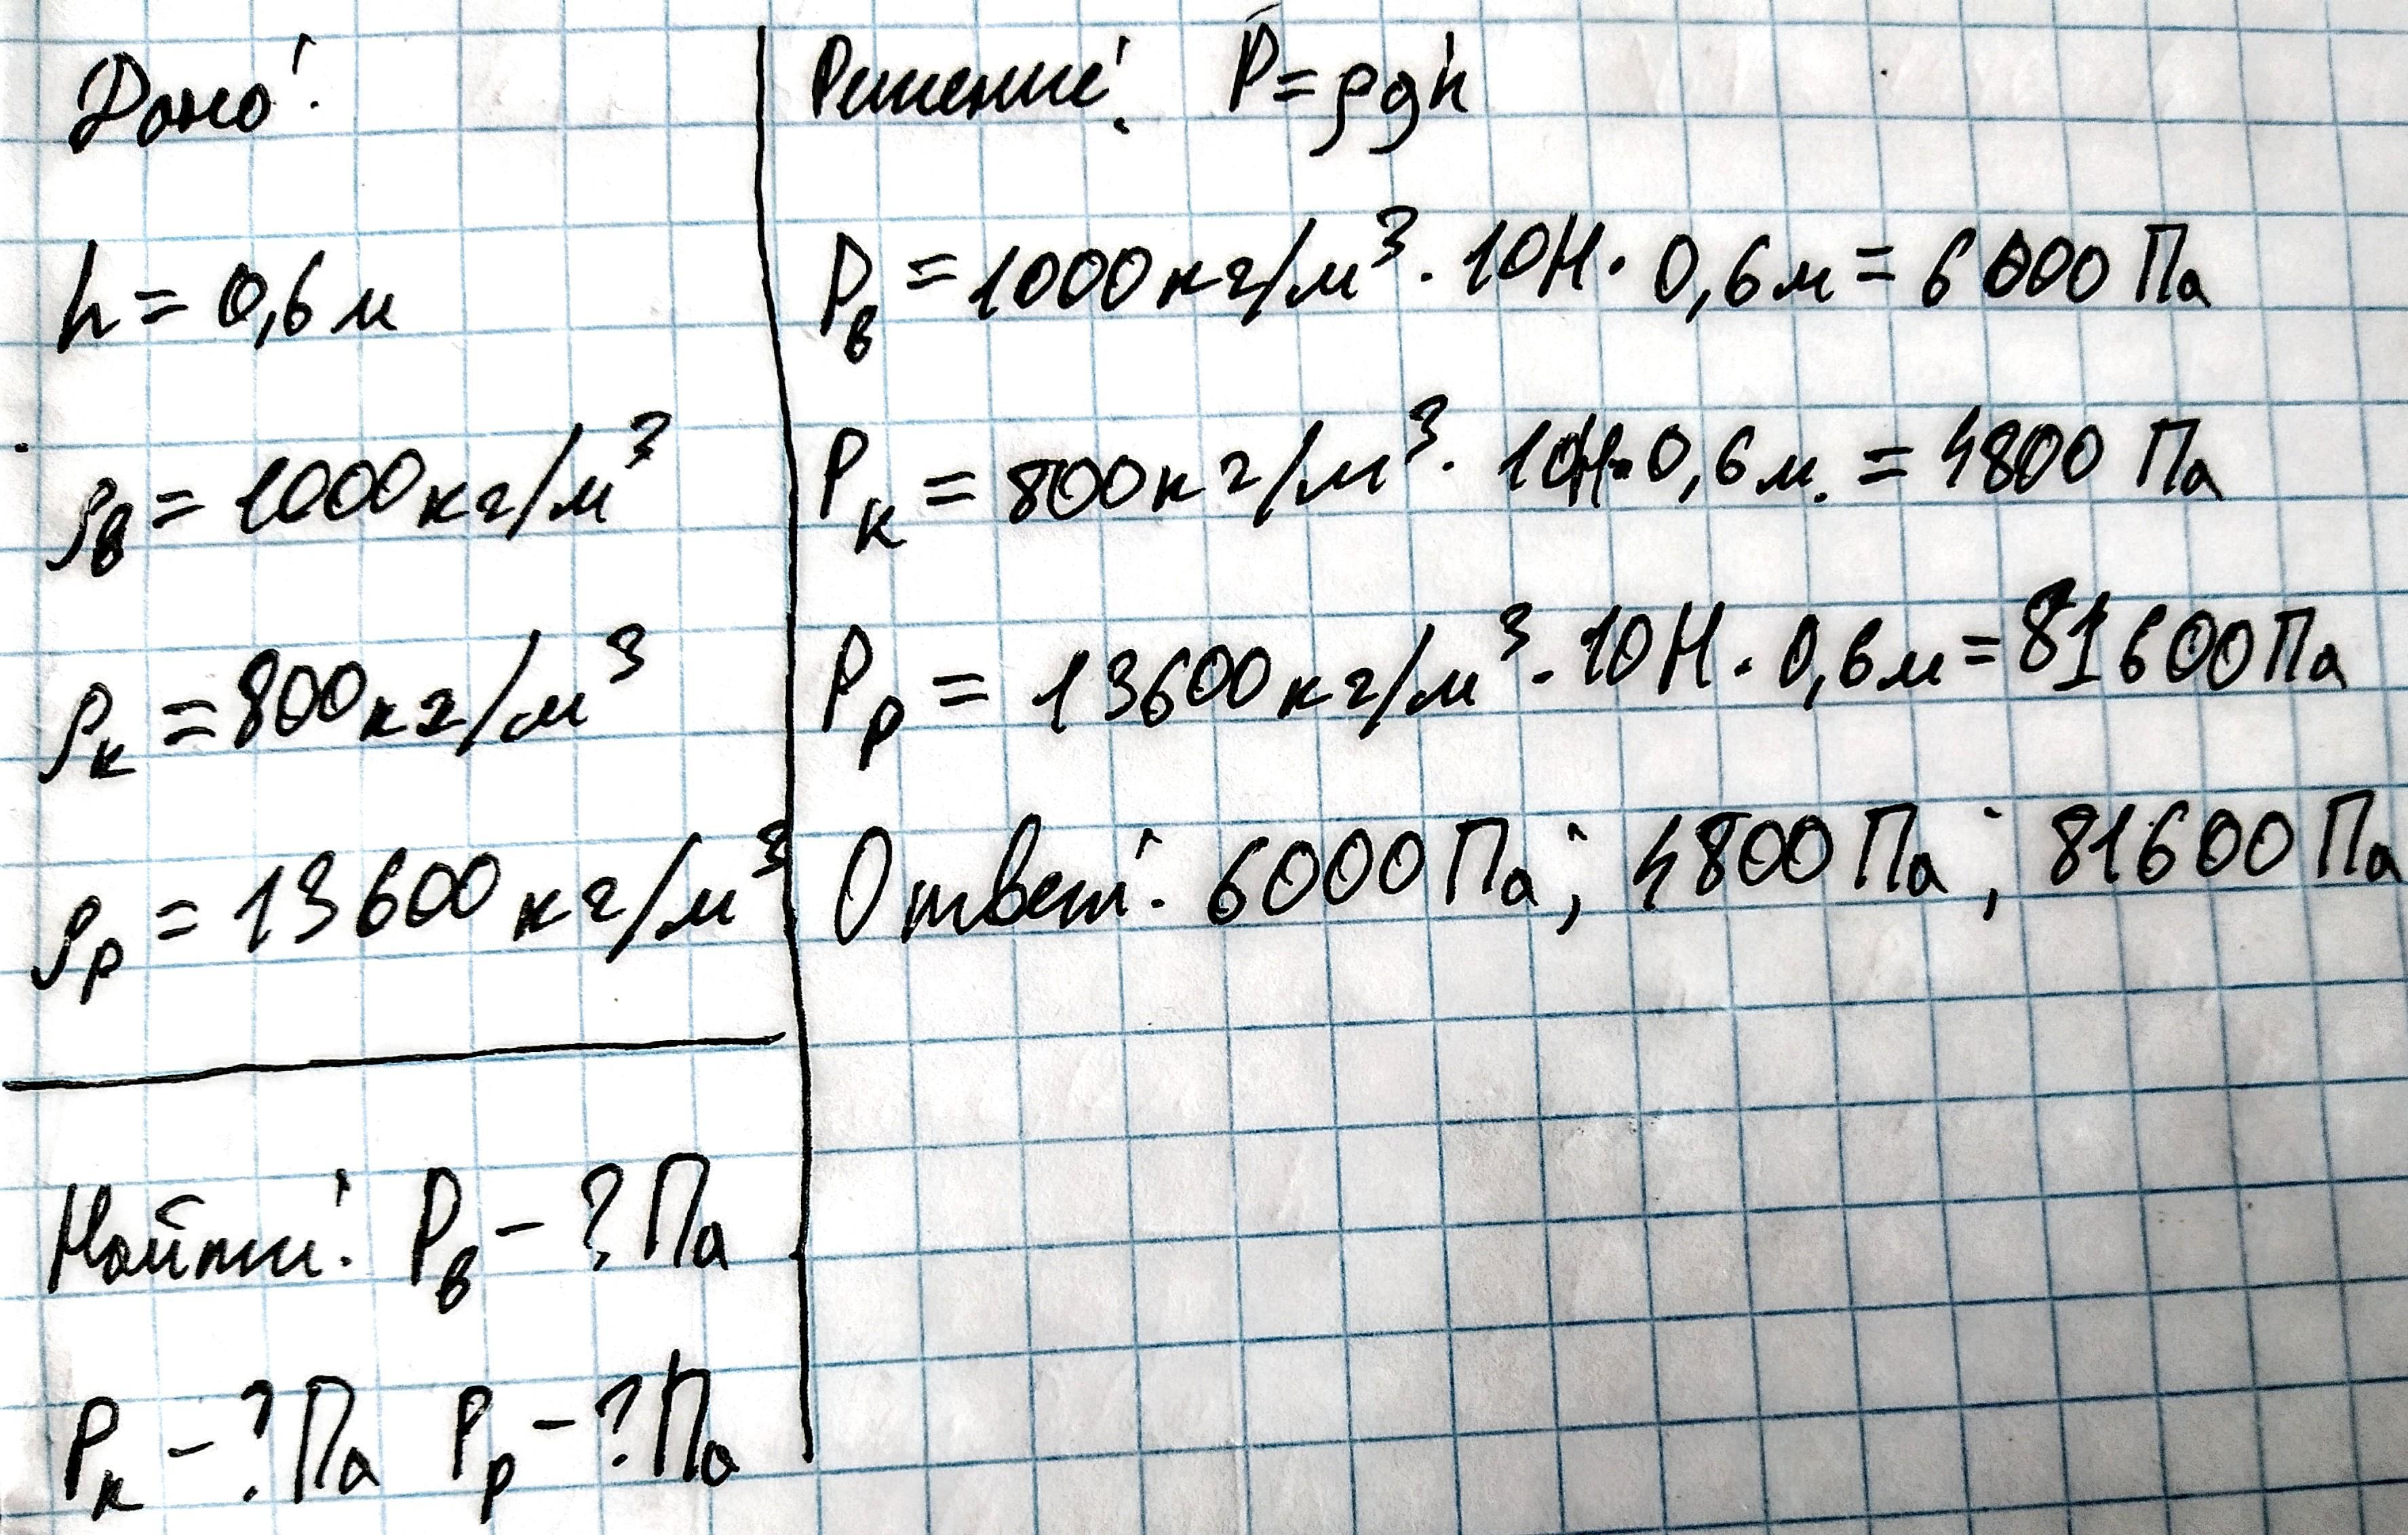 Дано:
h = 0,6 м
ρв = 1000 кг/м³
ρк = 800 кг/м³
ρр = 13600 кг/м³
Найти: Pв - ? Па
Pк - ? Па Pр - ? Па
Решение: P = ρgh
Pв = 1000 кг/м³ · 10Н · 0,6 м = 6000 Па
Pк = 800 кг/м³ · 10Н · 0,6 м. = 4800 Па
Pр = 13600 кг/м³ · 10Н · 0,6 м = 81600 Па
Ответ: 6000 Па; 4800 Па; 81600 Па